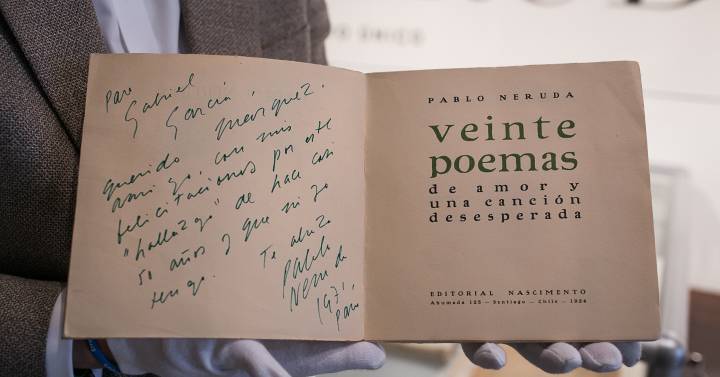 O ÚNICO
Para
Gabriel
García
Marquez.
querido
amigo, con mis
felicitaciones por este
"hallazgo" de hace casi
50 años y que ni yo
tengo.
Te abraza
Pablo
Neruda
1971,
Paris
PABLO NERUDA
veinte
poemas
de amor y
una canción
desesperada
EDITORIAL NASCIMENTO
Ahumada 125 — Santiago — Chile — 1924